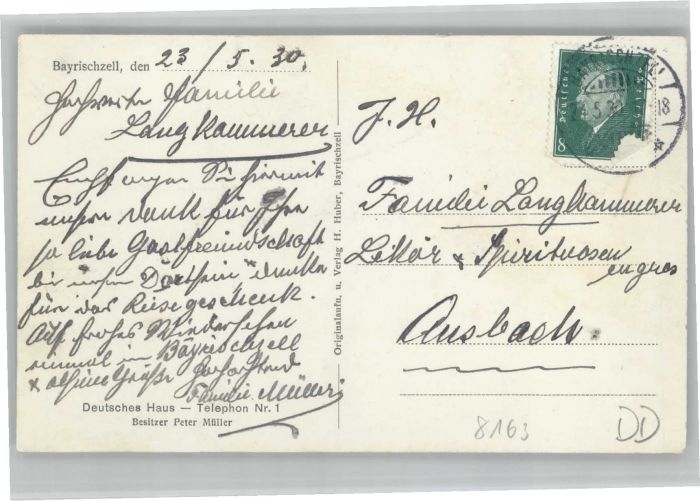 Bayrischzell, den 23/5.30.
Familie
Langkammerer
Empfangen Sie hiermit
unsern Dank für Ihre
so liebe Gastfreundschaft
bei Dortsein danke
für das Reisegeschenk.
Auf frohes Wiedersehen
einmal in Bayrischzell
& alpine Grüße
Familie Müller
Deutsches Haus — Telephon Nr. 1
Besitzer Peter Müller
Originalaufn. u. Verlag H. Huber, Bayrischzell
8
18
J. H.
Familie Langkammerer
Likör & Spirituosen
engros
Ansbach.
8163
DD